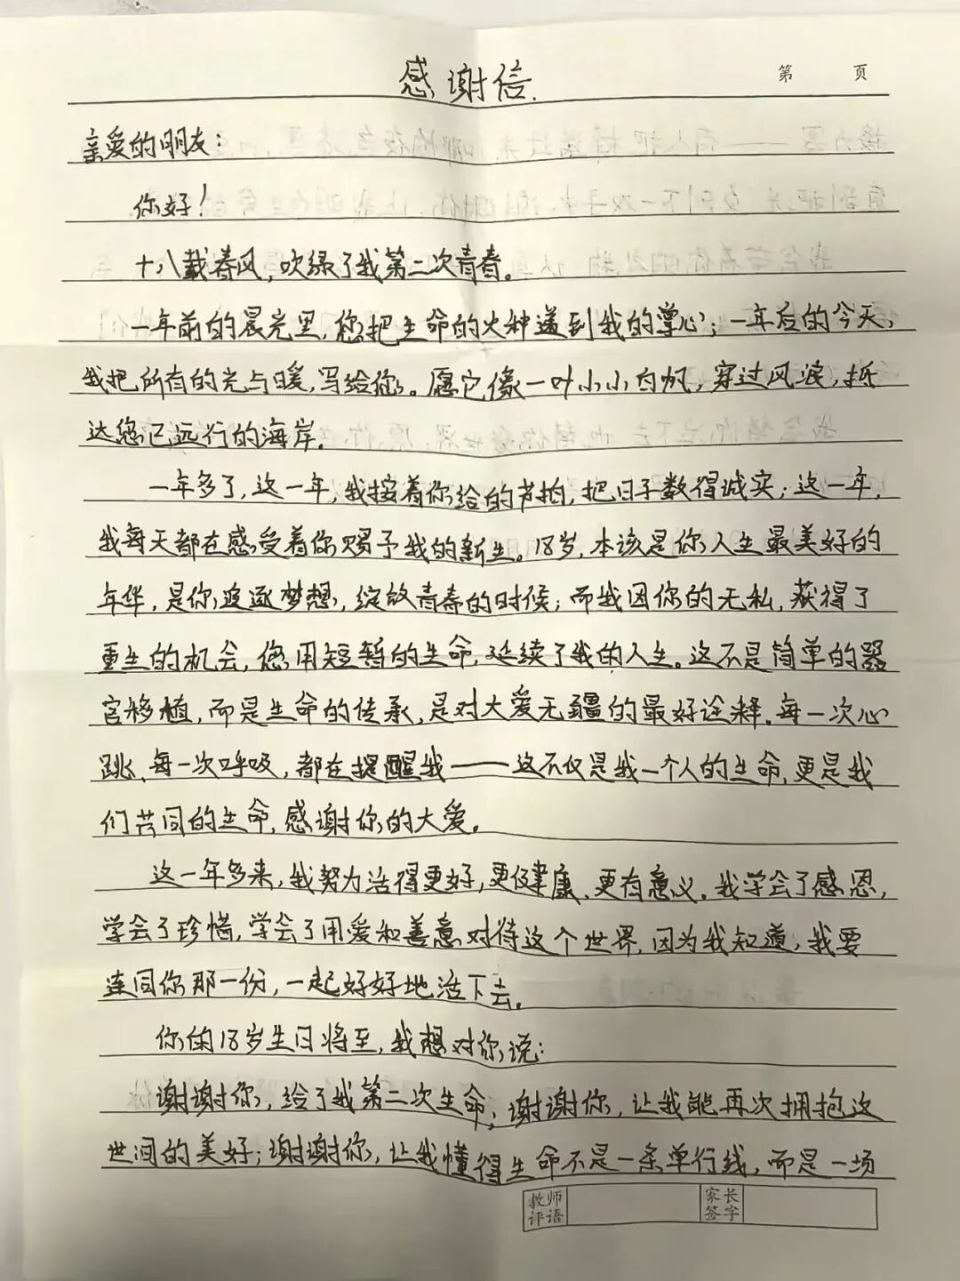 第 页
感谢信.
亲爱的朋友:
你好!
十八载春风,吹绿了我第二次青春。
一年前的晨光里,您把生命的火种递到我的掌心;一年后的今天,
我把所有的光与暖,写给你。愿它像一叶小小白帆,穿过风浪,抵
达您已远行的海岸.
一年多了,这一年,我按着你给的节拍,把日子数得诚实;这一年,
我每天都在感受着你赐予我的新生。18岁,本该是你人生最美好的
年华,是你追逐梦想,绽放青春的时候;而我因你的无私,获得了
重生的机会,您用短暂的生命,延续了我的人生。这不是简单的器
官移植,而是生命的传承,是对大爱无疆的最好诠释。每一次心
跳、每一次呼吸,都在提醒我——这不仅是我一个人的生命,更是我
们共同的生命,感谢你的大爱。
这一年多来,我努力活得更好,更健康、更有意义。我学会了感恩,
学会了珍惜,学会了用爱和善意对待这个世界,因为我知道,我要
连同你那一份,一起好好地活下去。
你的18岁生日将至,我想对你说:
谢谢你,给了我第二次生命;谢谢你,让我能再次拥抱这
世间的美好;谢谢你,让我懂得生命不是一条单行线,而是一场
教师评语 家长签字